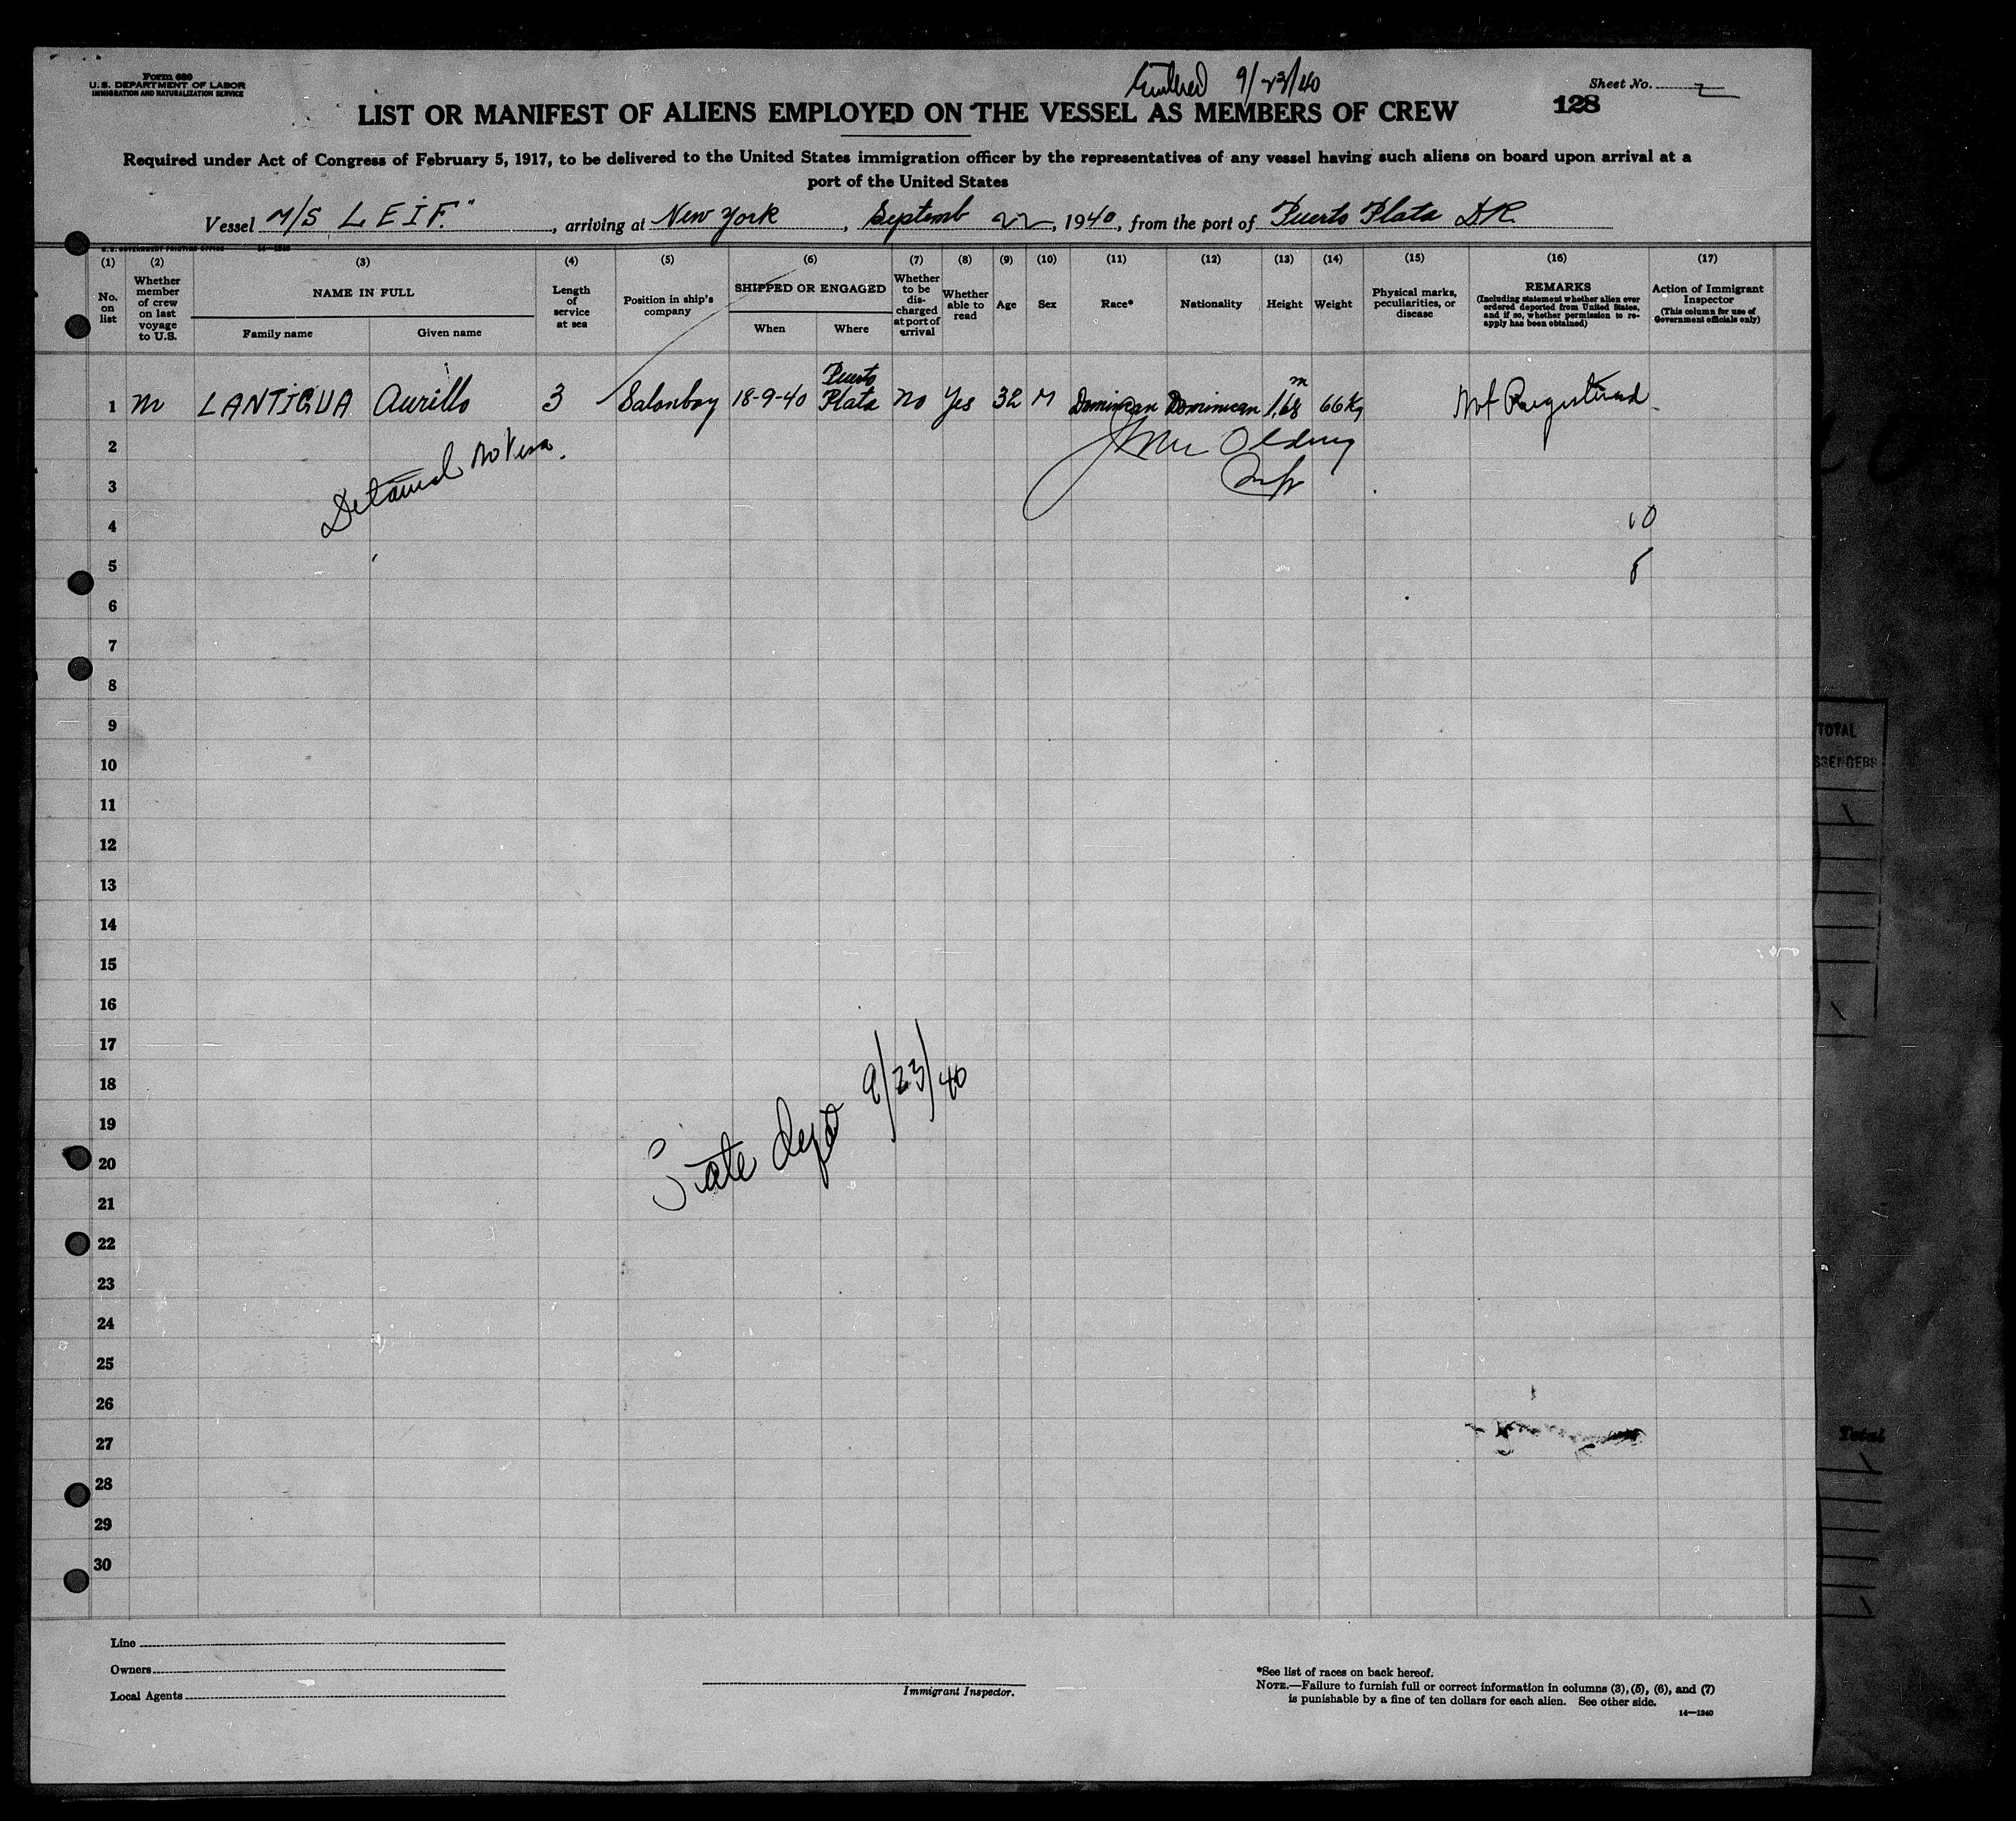 Form 680
U.S. DEPARTMENT OF LABOR
IMMIGRATION AND NATURALIZATION SERVICE
9/23/40
Sheet No. 2
128
LIST OR MANIFEST OF ALIENS EMPLOYED ON THE VESSEL AS MEMBERS OF CREW
Required under Act of Congress of February 5, 1917, to be delivered to the United States immigration officer by the representatives of any vessel having such aliens on board upon arrival at a
port of the United States
Vessel M/S LEIF." , arriving at New York , Septemb 22, 1940, from the port of Puerto Plata D.R.
U.S. GOVERNMENT PRINTING OFFICE
(1) (2) (3) (4) (5) (6) (7) (8) (9) (10) (11) (12) (13) (14) (15) (16) (17)
No. on list
Whether member of crew on last voyage to U.S.
NAME IN FULL
Family name
Given name
Length of service at sea
Position in ship's company
SHIPPED OR ENGAGED
When
Where
Whether to be discharged at port of arrival
Whether able to read
Age
Sex
Race*
Nationality
Height
Weight
Physical marks, peculiarities, or disease
REMARKS
(Including statement whether alien ever ordered deported from United States, and if so, whether permission to reapply has been obtained)
Action of Immigrant Inspector
(This column for use of Government officials only)
1 m LANTIGUA Aurillo 3 Salonboy 18-9-40 Puerto Plata No Yes 32 M Dominican Dominican 1,68 m 66 Kg Not Registered
2
Detained No Visa.
3
4
10
5
6
7
8
9
10
11
12
13
14
15
16
17
18
19
State dept 9/23/40
20
21
22
23
24
25
26
27
28
29
30
TOTAL
Total
Line
Owners
Local Agents
Immigrant Inspector.
*See list of races on back hereof.
NOTE.—Failure to furnish full or correct information in columns (3), (5), (6), and (7)
is punishable by a fine of ten dollars for each alien. See other side.
14—1240